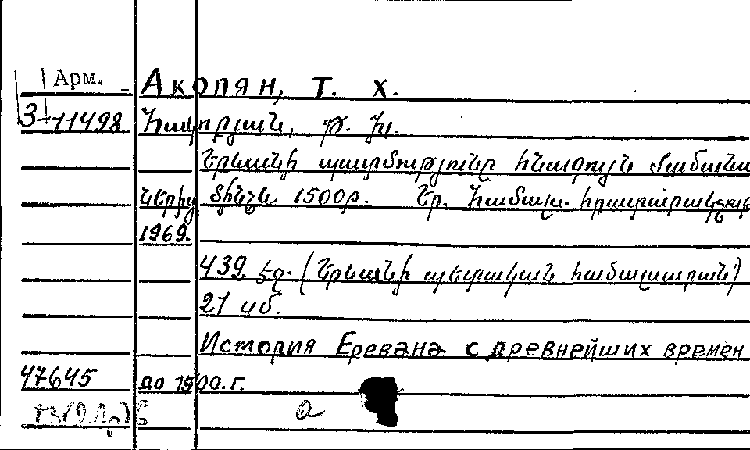 Арм. Акопян, Т. Х.
3-11498 Հակոբյան, Թ. Խ.
Երևանի պատմությունը հնագույն ժամանա
ներից մինչև 1500թ. Եր. Համալս. հրատարակչ
1969.
439 էջ. (Երևանի պետական համալսարան)
21 սմ.
История Еревана с древнейших времен
47645 до 1900.г.
а